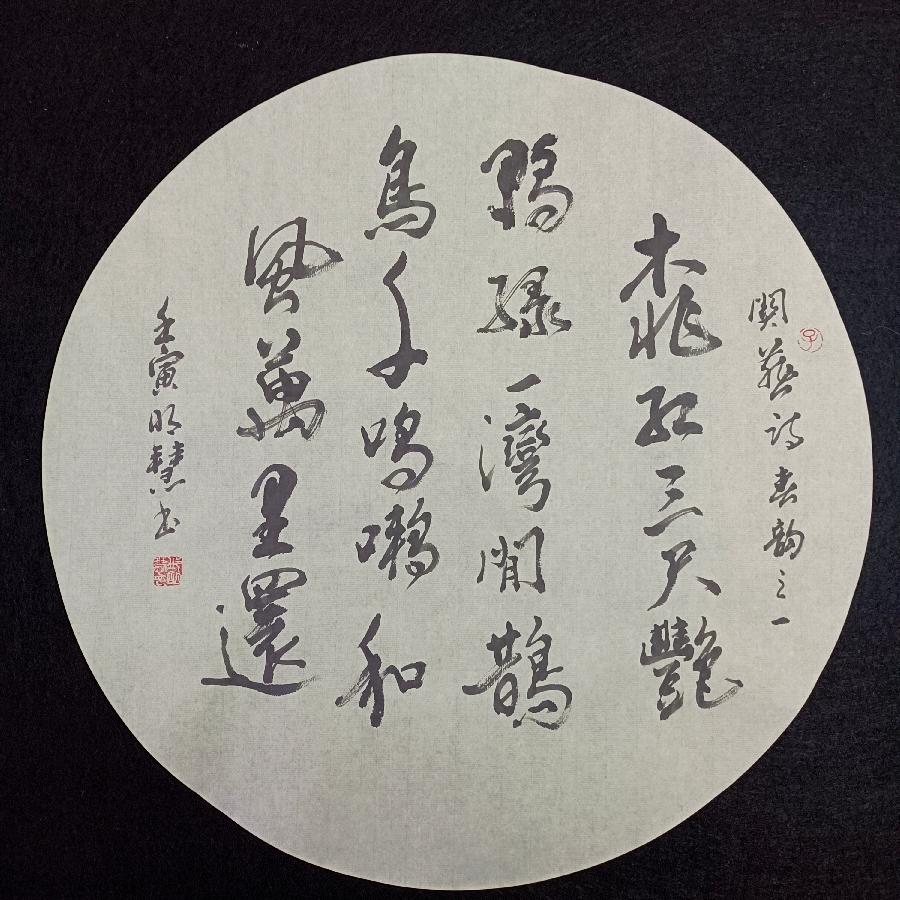 诗春韵之一
桃紅三尺艷
鴨綠一灣閒鵲
鳥千鳴囀和
風萬里還
壬寅明慧书